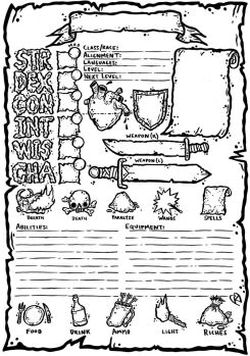 CLASS/RACE:
ALIGNMENT:
LANGUAGES:
LEVEL:
NEXT LEVEL:
STR
DEX
CON
INT
WIS
CHA
WEAPON(R)
WEAPON(L)
BREATH
DEATH
PARALYZE
WANDS
SPELLS
ABILITIES:
EQUIPMENT:
FOOD
DRINK
AMMO
LIGHT
RICHES